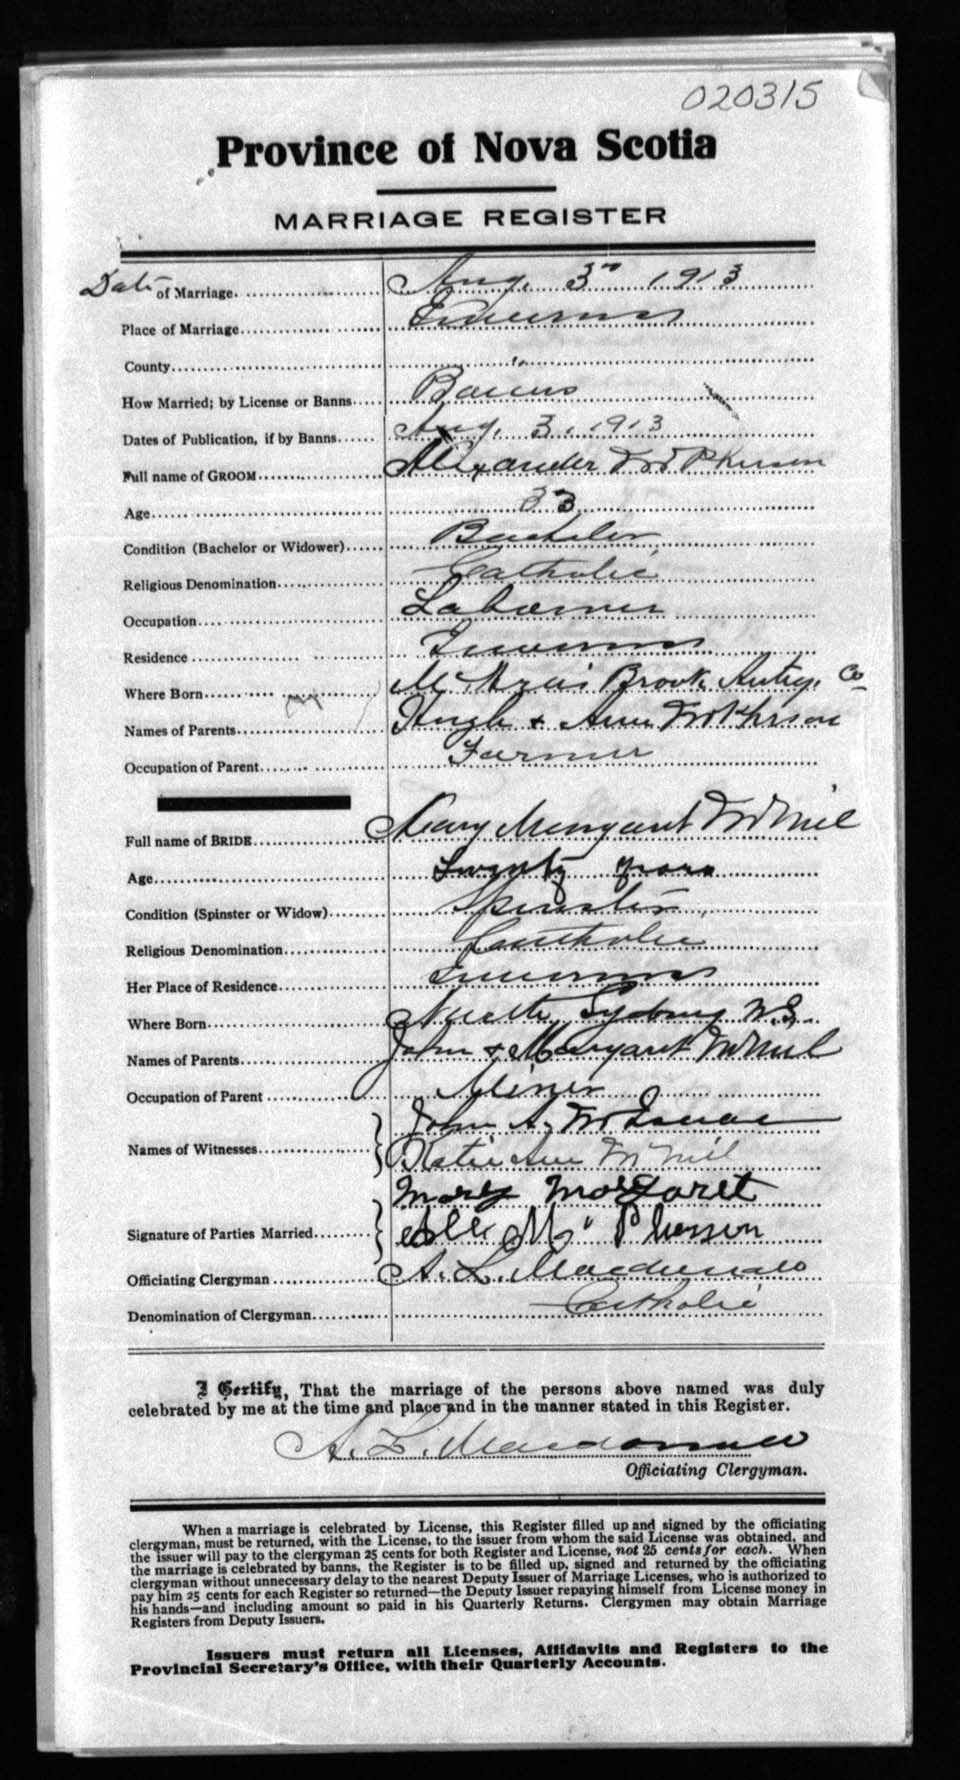 020315
Province of Nova Scotia
MARRIAGE REGISTER
Date of Marriage Aug. 3rd 1913
Place of Marriage Inverness
County "
How Married; by License or Banns Banns
Dates of Publication, if by Banns Aug. 3, 1913
Full name of GROOM Alexander McPherson
Age 33
Condition (Bachelor or Widower) Bachelor
Religious Denomination Catholic
Occupation Labourer
Residence Inverness
Where Born Brook Antig. Co
Names of Parents Hugh & Ann McPherson
Occupation of Parent Farmer
Full name of BRIDE Mary Margaret McNeil
Age Twenty years
Condition (Spinster or Widow) Spinster
Religious Denomination Catholic
Her Place of Residence Inverness
Where Born North Sydney N.S.
Names of Parents John & Margaret McNeil
Occupation of Parent Miner
John A. McIsaac
Names of Witnesses
Katie Ann McNeil
Mary Margaret
Signature of Parties Married Alex Mc Pherson
Officiating Clergyman A. L. Macdonald
Denomination of Clergyman Catholic
I Certify, That the marriage of the persons above named was duly
celebrated by me at the time and place and in the manner stated in this Register.
A. L. Macdonald
Officiating Clergyman.
When a marriage is celebrated by License, this Register filled up and signed by the officiating
clergyman, must be returned, with the License, to the issuer from whom the said License was obtained, and
the issuer will pay to the clergyman 25 cents for both Register and License, not 25 cents for each. When
the marriage is celebrated by banns, the Register is to be filled up, signed and returned by the officiating
clergyman without unnecessary delay to the nearest Deputy Issuer of Marriage Licenses, who is authorized to
pay him 25 cents for each Register so returned—the Deputy Issuer repaying himself from License money in
his hands—and including amount so paid in his Quarterly Returns. Clergymen may obtain Marriage
Registers from Deputy Issuers.
Issuers must return all Licenses, Affidavits and Registers to the
Provincial Secretary's Office, with their Quarterly Accounts.